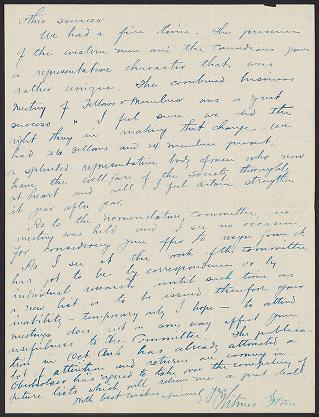 other sources
We had a fine time. The presence
of the western men and the Canadians gave
a representative character that was
rather unique. The combined business
meeting of Fellows & Members was a great
success & I feel sure we did the
right thing in making that change. We
had 26 fellows and 24 members present,
a splendid representative body of men who now
have the welfare of the Society thoroughly
at heart and will I feel certain strengthen
it year after year.
As to the nomenclature committee, no
meeting was held and I see no occasion
for considering your offer to resign from it.
As I see it the work of the committee
has got to be by correspondence or by
individual research until such time as
a new list is to be issued therefore your
inability - temporary only, I hope - to attend
meetings does not in any way affect your
usefulness to the Committee. The publica-
tion in Oct. Auk has already attracted a
lot of attention and returns are coming in.
Oberholser has agreed to take over the compiling of
future lists which will relieve me a great deal
With best wishes
Sincerely Yrs
Witmer Stone